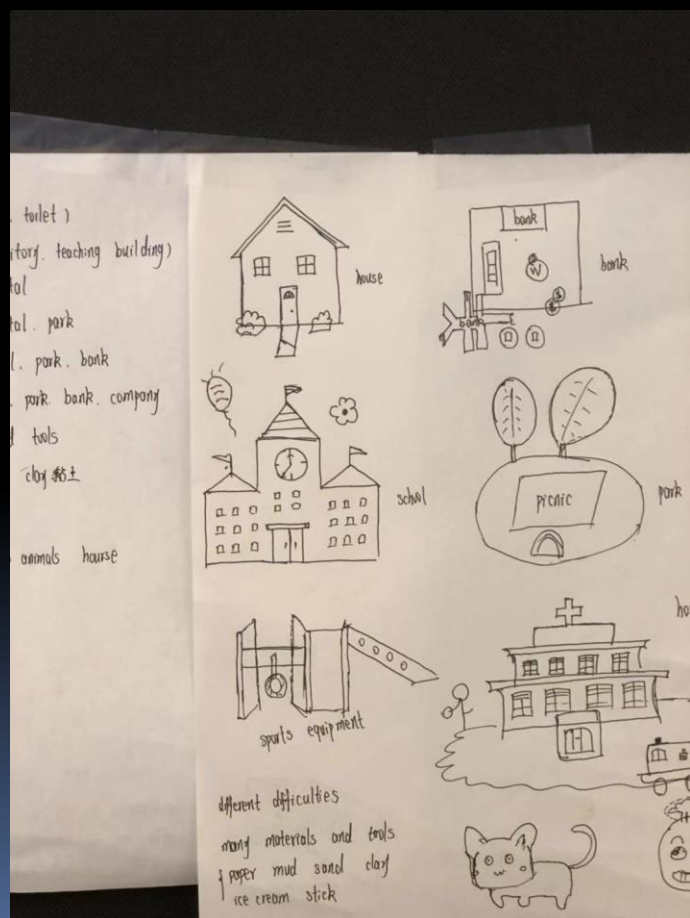 toilet )
itory. teaching building)
tal
tal. park
l. park. bank
park. bank. company
tools
clay 黏土
animals hourse
house
bank
bank
W
bank
school
picnic
park
ho
sports equipment
different difficulties
many materials and tools
paper mud sand clay
ice cream stick